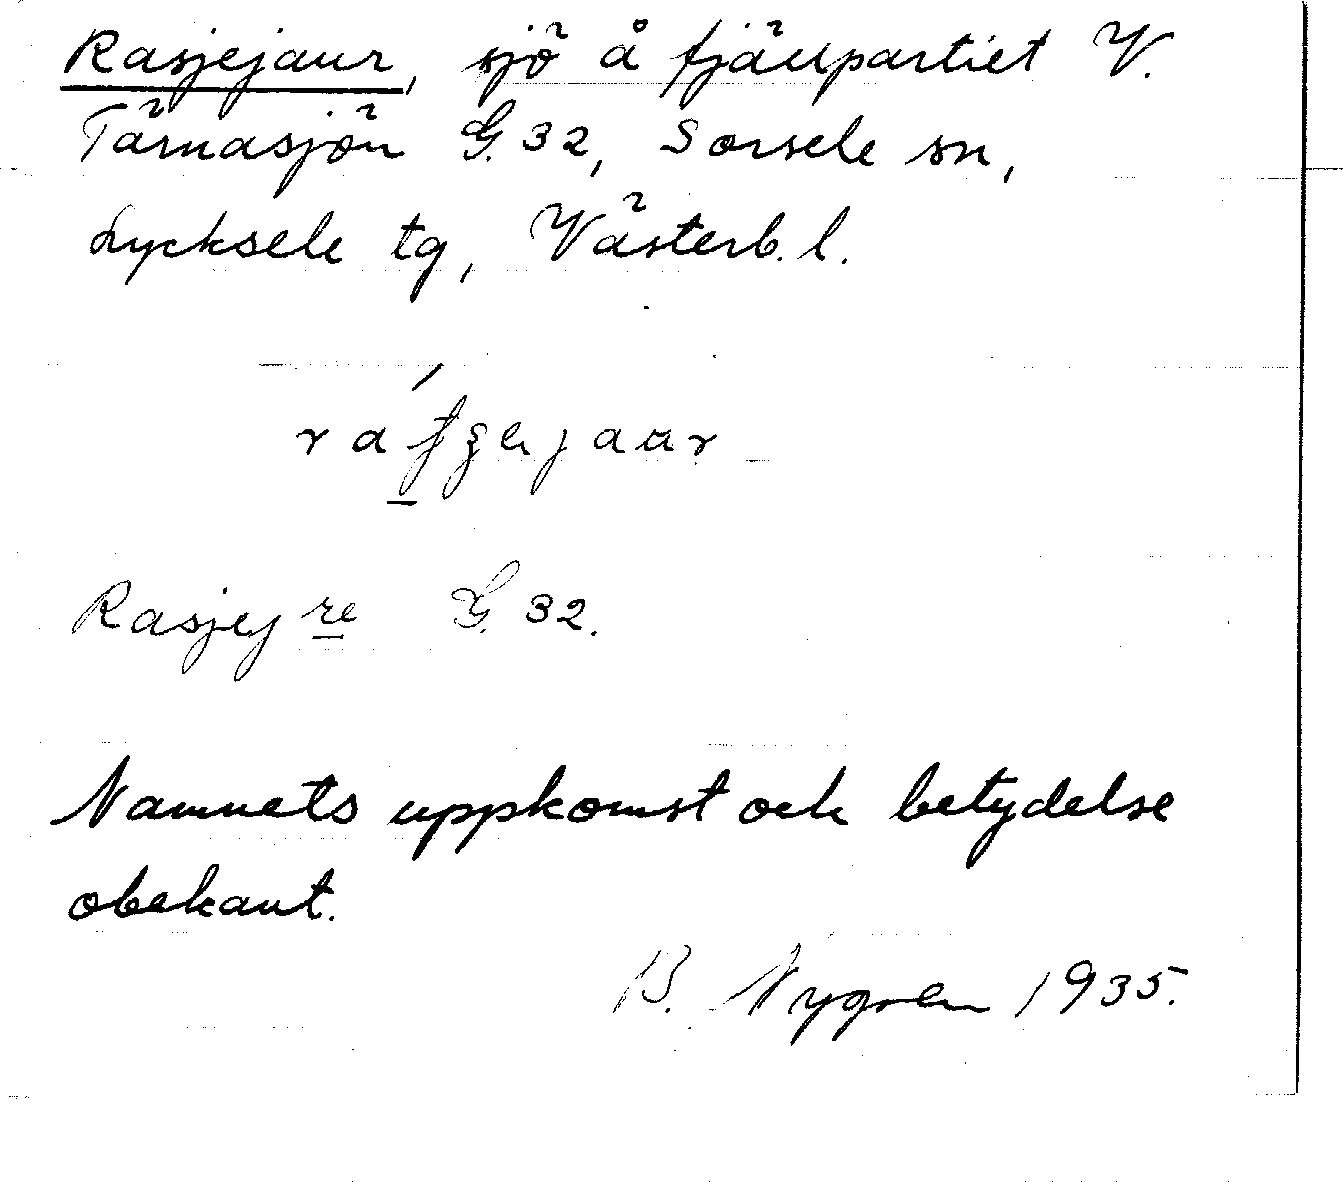 Rasjejaur, sjö å fjällpartiet V.
Tärnasjön G. 32, Sorsele sn,
Lycksele tg, Västerb. l.
Rasjejre G. 32.
Namnets uppkomst och betydelse
obekant.
B. Nygren 1935.